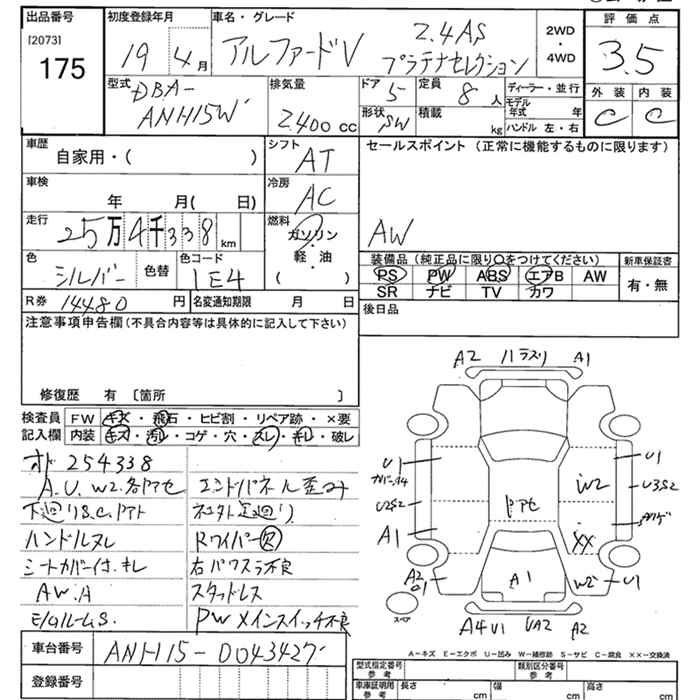 出品番号 初度登録年月 車名・グレード 評価点
[2073] 175
19年4月 アルファードV 2.4AS プラチナセレクション 2WD・4WD 3.5
型式 DBA-ANH15W 排気量 2.400cc ドア 5 定員 8人 ディーラー・並行 外装 内装
形状 SW 積載 kg モデル年式 年 ハンドル 左・右 C C
車歴 自家用・( ) シフト AT セールスポイント (正常に機能するものに限ります)
車検 年 月( 日) 冷房 AC
走行 25万4千338km 燃料 ガソリン・軽油 ( ) AW
色 シルバー 色替 色コード 1E4
装備品 (純正品に限り○をつけてください) 新車保証書
PS PW ABS エアB AW 有・無
SR ナビ TV カワ
R券 14480円 名変通知期限 月 日 後日品
注意事項申告欄 (不具合内容等は具体的に記入して下さい)
修復歴 有 〔箇所 〕
検査員 FW キズ・飛石・ヒビ割・リペア跡・×要
記入欄 内装 キズ・汚レ・コゲ・穴・スレ・キレ・破レ
メーター 254338
A.U.W2.各アセ エンドパネル歪み
下廻りS.C.アト
ハンドルスレ Rワイパー欠
シートカバー付.キレ 右パワスラ不良
AW.A スタッドレス
E/Gルーム S. PWメインスイッチ不良
車台番号 ANH15-0043427
登録番号
A2 ハラスリ A1
U1 U1
W2 U3S2
U2S2 アセ
A1 XX
A2 U1 A1 W2 U1
スペア
A4U1 UA2 A2
A-キズ E-エクボ U-凹み W-補修跡 S-サビ C-腐食 ××-交換済
型式指定番号 参考 類別区分番号 参考
車庫証明用 参考 長さ cm 幅 cm 高さ cm